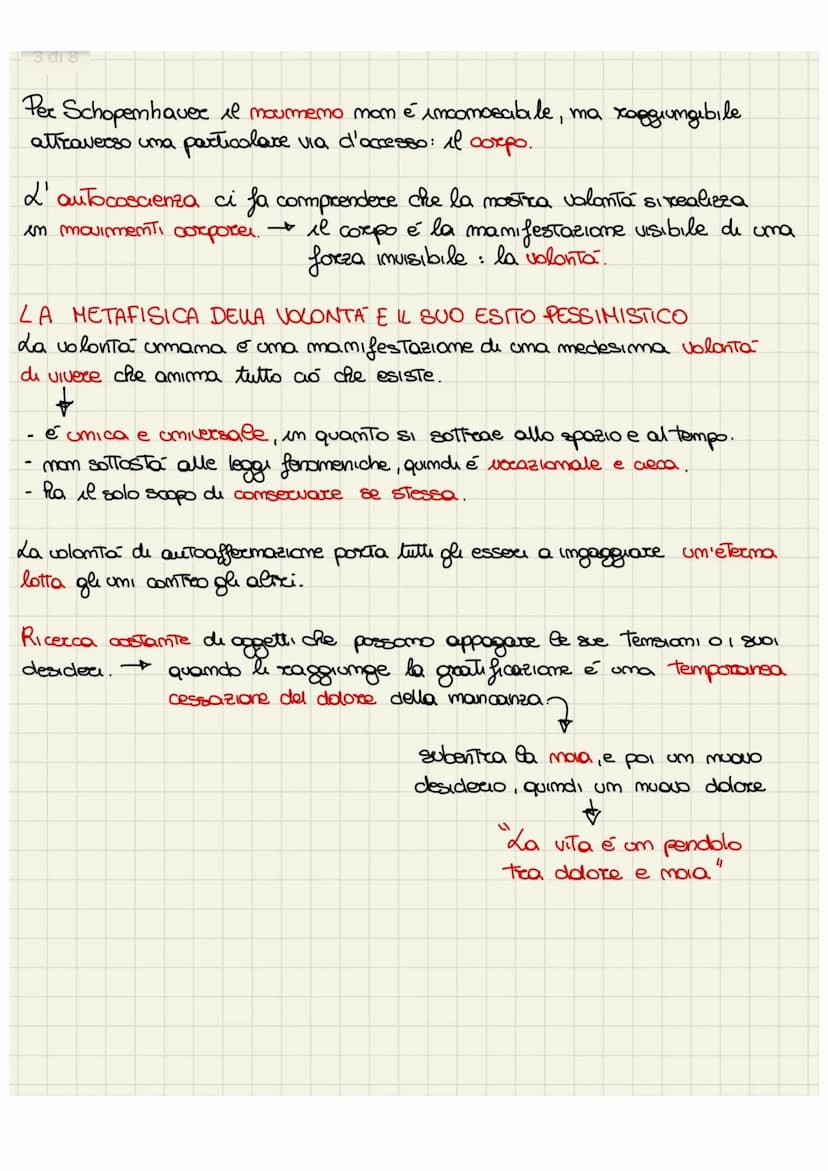 3 di 8
Per Schopenhauer il noumeno non é inconoscibile, ma raggiungibile
attraverso una particolare via d'accesso: il corpo.
L'autocoscienza ci fa comprendere che la nostra volontá si realizza
in movimenti corporei. → il corpo é la manifestazione visibile di una
forza invisibile: la volontá.
LA METAFISICA DELLA VOLONTÁ E IL SUO ESITO PESSIMISTICO
La volontá umana é una manifestazione di una medesima volontá
di vivere che anima tutto ció che esiste.
↓
- é unica e universale, in quanto si sottrae allo spazio e al tempo.
- non sottostá alle leggi fenomeniche, quindi é irrazionale e cieca.
- ha il solo scopo di conservare se stessa.
La volontá di autoaffermazione porta tutti gli esseri a ingaggiare un'eterna
lotta gli uni contro gli altri.
Ricerca costante di oggetti che possano appagare le sue tensioni o i suoi
desideri. → quando li raggiunge la gratificazione é una temporanea
cessazione del dolore della mancanza.
↓
subentra la noia, e poi un nuovo
desiderio, quindi un nuovo dolore
↓
"La vita é un pendolo
tra dolore e noia"